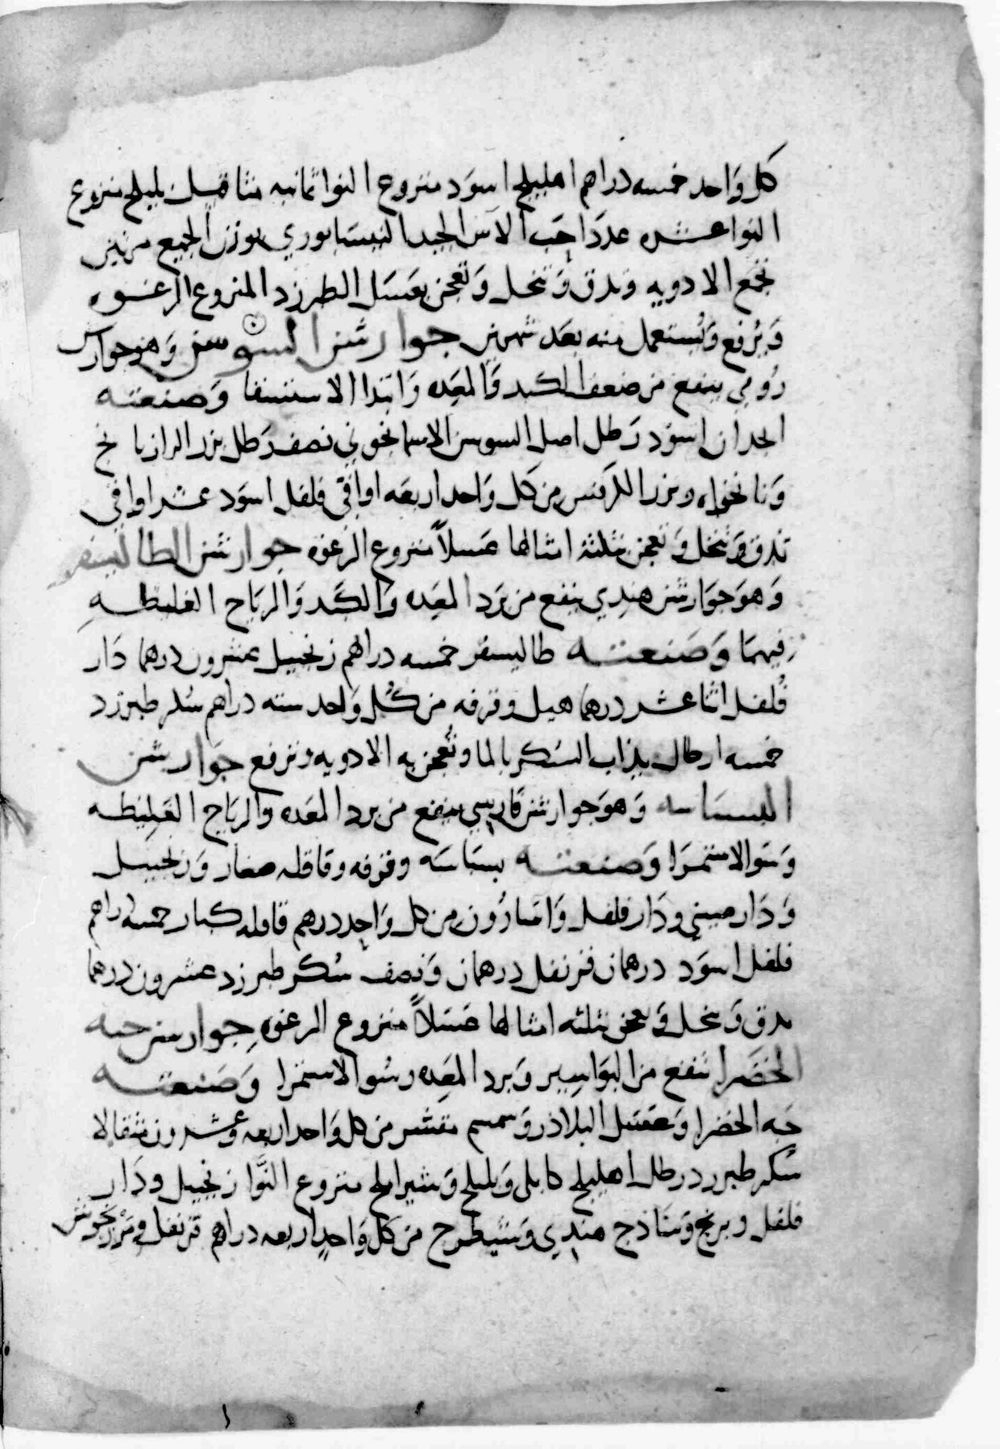 كل واحد خمسه دراهم اهليلج اسود منزوع النوا ثمانيه مثاقيل بليلج منزوع
النوا عشره عددا حب الآس الجيد النيسابوري بوزن الجميع مرتين
تجمع الادويه وتدق وتنخل وتعجن بعسل الطبرزد المنزوع الرغوه
وترفع وتستعمل منه بعد شهرين جوارشن السوسن وهو جوارشن
رومي ينفع من ضعف الكبد والمعده وابتدا الاستسقا وصنعته
انجدان اسود رطل اصل السوسن الاسمانجوني نصف رطل بزر الرازيانج
ونانخواه وبزر الكرفس من كل واحد اربعه اواقي فلفل اسود عشر اواقي
تدق وتنخل وتعجن بثلثة امثالها عسلاً منزوع الرغوه جوارشن الطاليسفر
وهو جوارشن هندي ينفع من برد المعده والكبد والرياح الغليظه
فيهما وصنعته طاليسفر خمسه دراهم زنجبيل عشرون درهما دار
فلفل اثنا عشر درهما هيل وقرفه من كل واحد سته دراهم سكر طبرزد
خمسه ارطال يذاب السكر بالما وتعجن به الادويه وترفع جوارشن
البسباسه وهو جوارشن فارسي ينفع من برد المعده والرياح الغليظه
وسو الاستمرا وصنعته بسباسه وقرفه وقاقله صغار وزنجبيل
ودار صيني ودار فلفل واسارون من كل واحد درهم قاقله كبار خمسه دراهم
فلفل اسود درهمان قرنفل درهمان ونصف سكر طبرزد عشرون درهما
يدق وينخل ويعجن بثلثه امثالها عسلاً منزوع الرغوه جوارشن حبه
الخضرا تنفع من البواسير وبرد المعده وسو الاستمرا وصنعته
حبه الخضرا وعسل البلاذر وسمسم مقشر من كل واحد اربعه وعشرون مثقالا
سكر طبرزد رطل اهليلج كابلي وبليلج وشيراملج منزوع النوا زنجبيل ودار
فلفل وبرنج وساذج هندي وشيطرج من كل واحد اربعه دراهم قرنفل ومرزنجوش